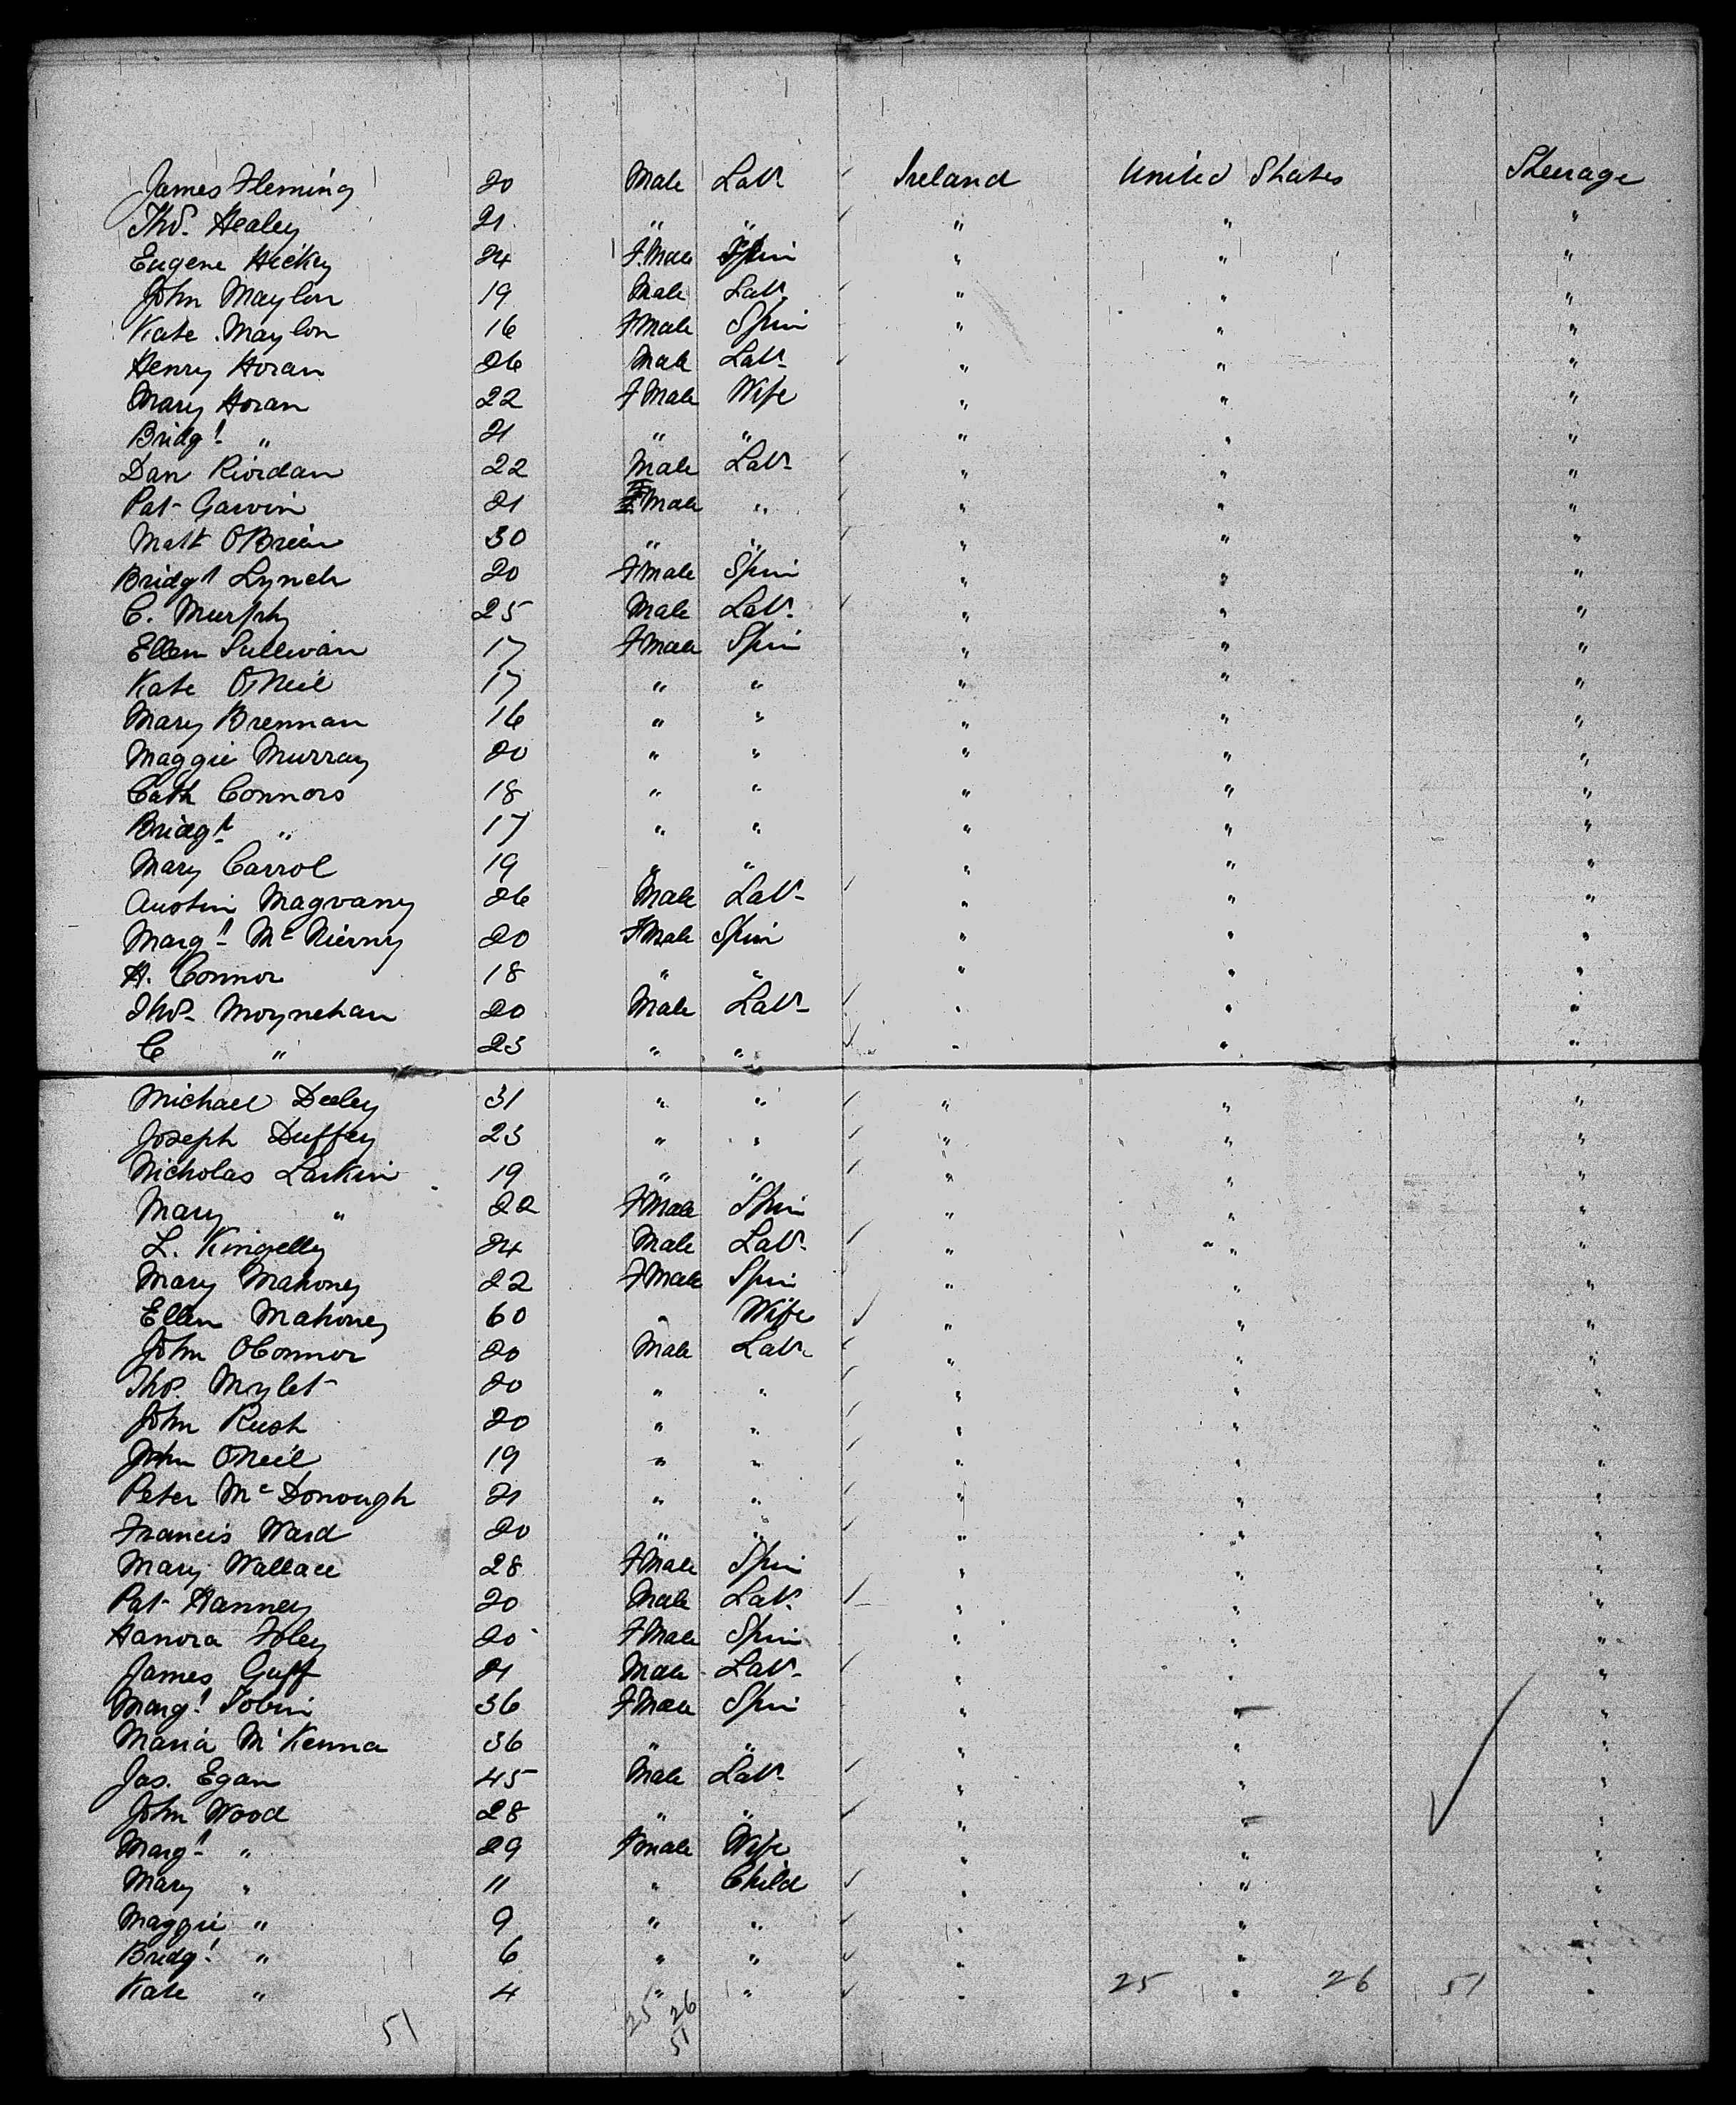 James Fleming 20 Male Labr Ireland United States Steerage
Thos. Healey 21 " " " " "
Eugene Hickey 24 F.Male Spin " " "
John Maylon 19 Male Labr " " "
Kate Maylon 16 FMale Spin " " "
Henry Horan 26 Male Labr " " "
Mary Horan 22 FMale Wife " " "
Bridgt " 21 " " " " "
Dan Riordan 22 Male Labr " " "
Pat Garvin 21 Male " " " "
Matt OBrien 30 " " " " "
Bridgt Lynch 20 FMale Spin " " "
C. Murphy 25 Male Labr " " "
Ellen Sullivan 17 FMale Spin " " "
Kate ONeil 17 " " " " "
Mary Brennan 16 " " " " "
Maggie Murray 20 " " " " "
Cath Connors 18 " " " " "
Bridgt " 17 " " " " "
Mary Carrol 19 " " " " "
Austin Magvany 26 Male Labr " " "
Margt McNierny 20 FMale Spin " " "
H. Connor 18 " " " " "
Thos. Moynehan 20 Male Labr " " "
C " 23 " " " " "
Michael Deeley 31 " " " " "
Joseph Duffey 23 " " " " "
Nicholas Larkin 19 " " " " "
Mary " 22 FMale Spin " " "
L. Kingelly 24 Male Labr " " "
Mary Mahoney 22 FMale Spin " " "
Ellen Mahoney 60 " Wife " " "
John OConnor 20 Male Labr " " "
Thos. Mylet 20 " " " " "
John Rush 20 " " " " "
John ONeil 19 " " " " "
Peter McDonough 21 " " " " "
Francis Ward 20 " " " " "
Mary Wallace 28 FMale Spin " " "
Pat Hanney 20 Male Labr " " "
Hanora Foley 20 FMale Spin " " "
James Guff 21 Male Labr " " "
Margt Tobin 36 FMale Spin " " "
Maria McKenna 36 " " " " "
Jas. Egan 45 Male Labr " " "
John Wood 28 " " " " "
Margt " 29 FMale Wife " " "
Mary " 11 " Child " " "
Maggie " 9 " " " " "
Bridgt " 6 " " " " "
Kate " 4 " " " 25 " 26 51 "
51 25 26
51